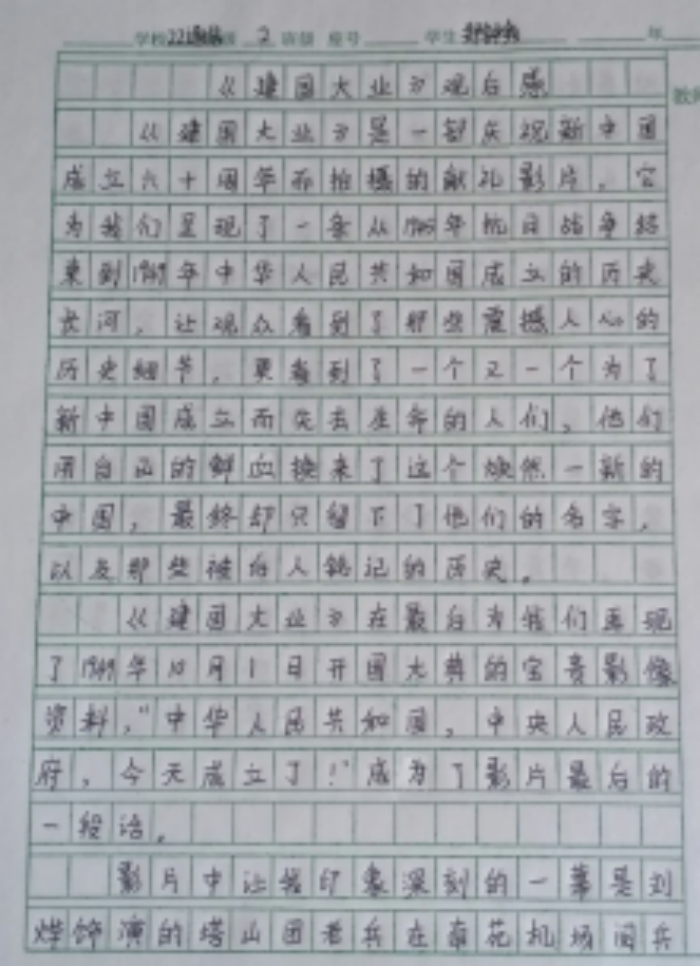 学校 22 级 2 班级 座号 学生 年
《建国大业》观后感
《建国大业》是一部庆祝新中国
成立六十周年而拍摄的献礼影片。它
为我们呈现了一条从1945年抗日战争结
束到1949年中华人民共和国成立的历史
长河，让观众看到了那些震撼人心的
历史细节，更看到了一个又一个为了
新中国成立而失去生命的人们，他们
用自己的鲜血换来了这个焕然一新的
中国，最终却只留下了他们的名字，
以及那些被后人铭记的历史。
《建国大业》在最后为我们再现
了1949年10月1日开国大典的宝贵影像
资料，"中华人民共和国，中央人民政
府，今天成立了！"成为了影片最后的
一段话。
影片中让我印象深刻的一幕是刘
烨饰演的塔山团老兵在南苑机场阅兵
教师